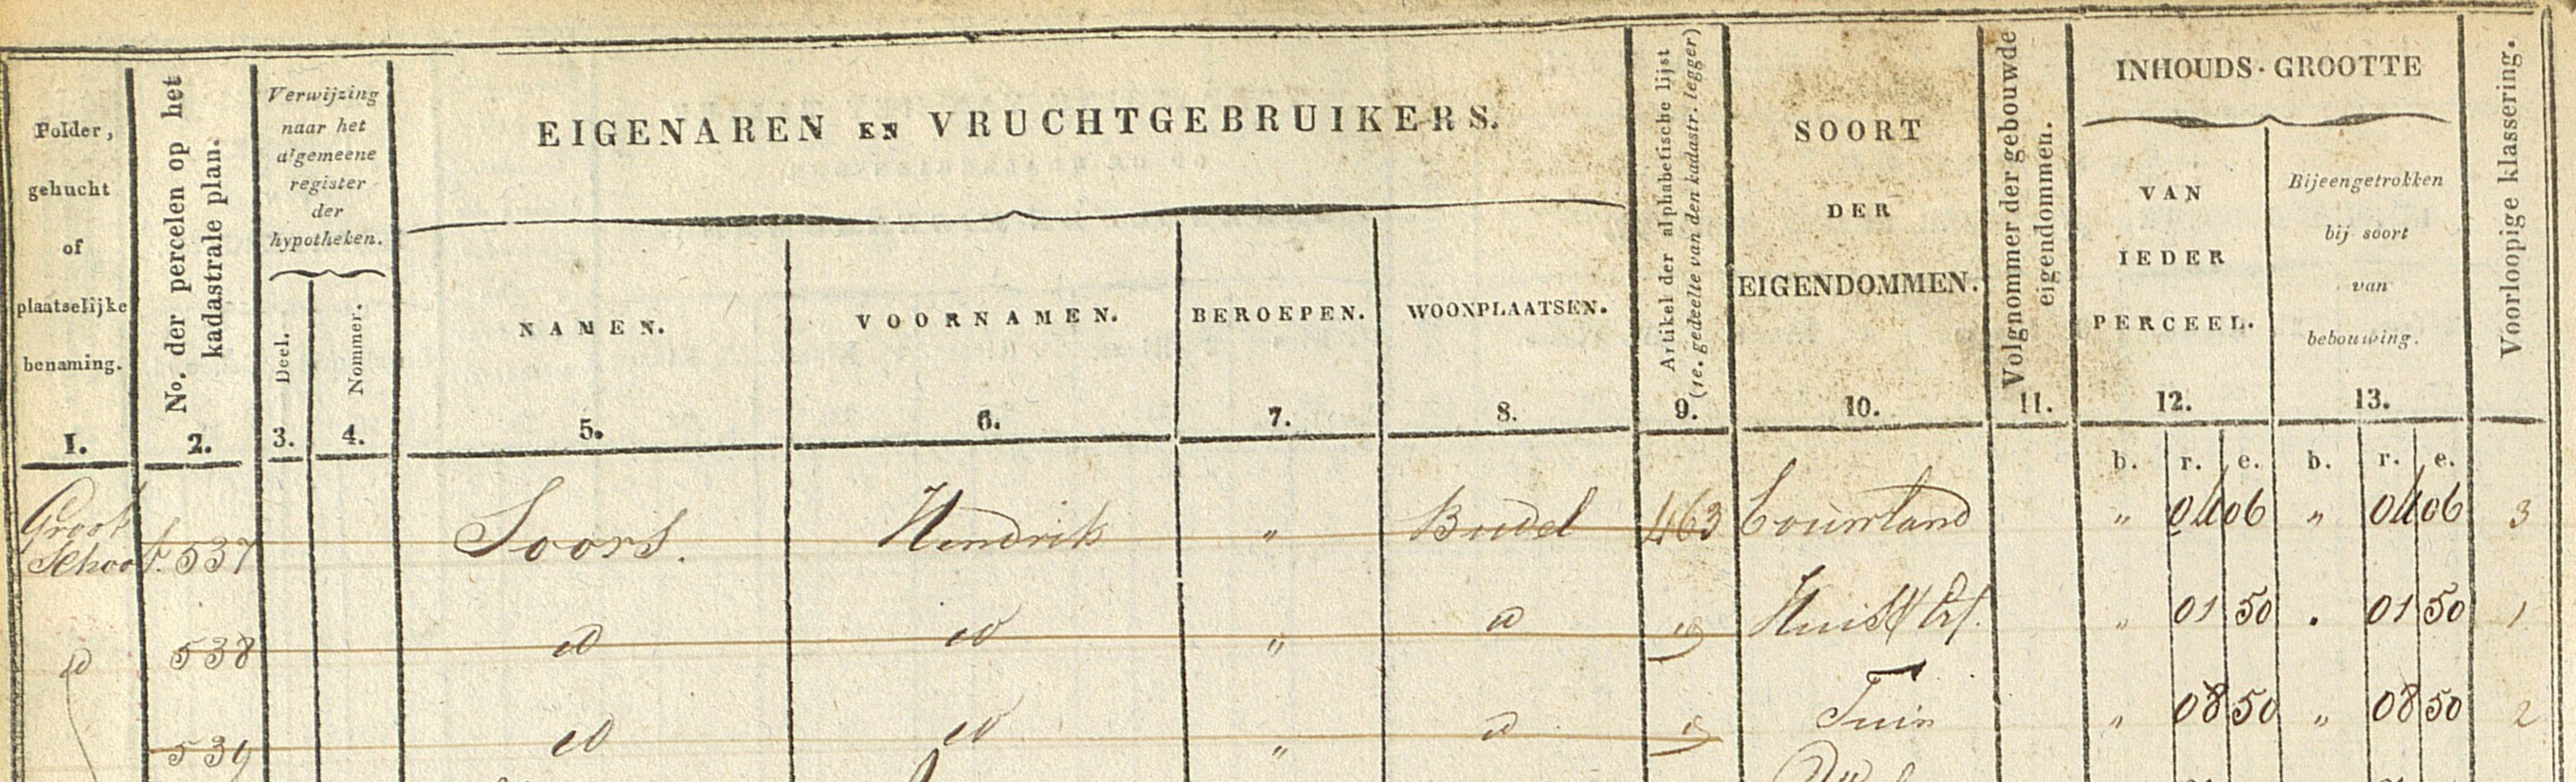 Polder,
gehucht
of
plaatselijke
benaming.
1.
No. der percelen op het
kadastrale plan.
2.
Verwijzing
naar het
algemeene
register
der
hypotheken.
Deel.
3.
Nommer.
4.
EIGENAREN EN VRUCHTGEBRUIKERS.
NAMEN.
5.
VOORNAMEN.
6.
BEROEPEN.
7.
WOONPLAATSEN.
8.
Artikel der alphabetische lijst
(1e. gedeelte van den kadastr. legger)
9.
SOORT
DER
EIGENDOMMEN.
10.
Volgnommer der gebouwde
eigendommen.
11.
INHOUDS-GROOTTE
VAN
IEDER
PERCEEL.
12.
Bijeengetrokken
bij soort
van
bebouwing.
13.
Voorloopige klassering.
b. r. e. b. r. e.
Groot
Schoot 537 Soors. Hendrik " Budel 463 Bouwland " 04 06 " 04 06 3
id 538 id id " id id Huis & Erf. " 01 50 . 01 50 1
539 id id " id id Tuin " 08 50 " 08 50 2